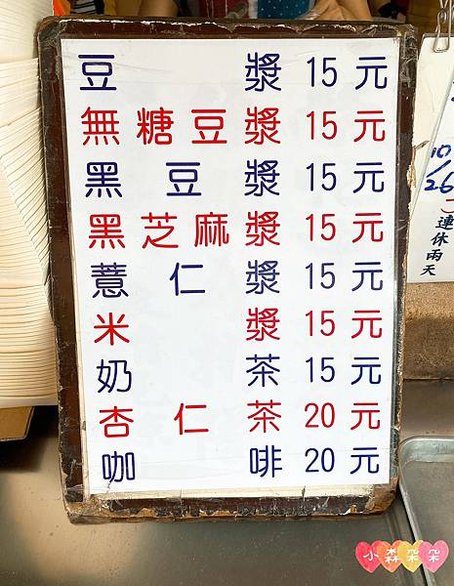 豆漿 15 元
無糖豆漿 15 元
黑豆漿 15 元
黑芝麻漿 15 元
薏仁漿 15 元
米漿 15 元
奶茶 15 元
杏仁茶 20 元
咖啡 20 元
10/26
連休兩天
小森朵朵